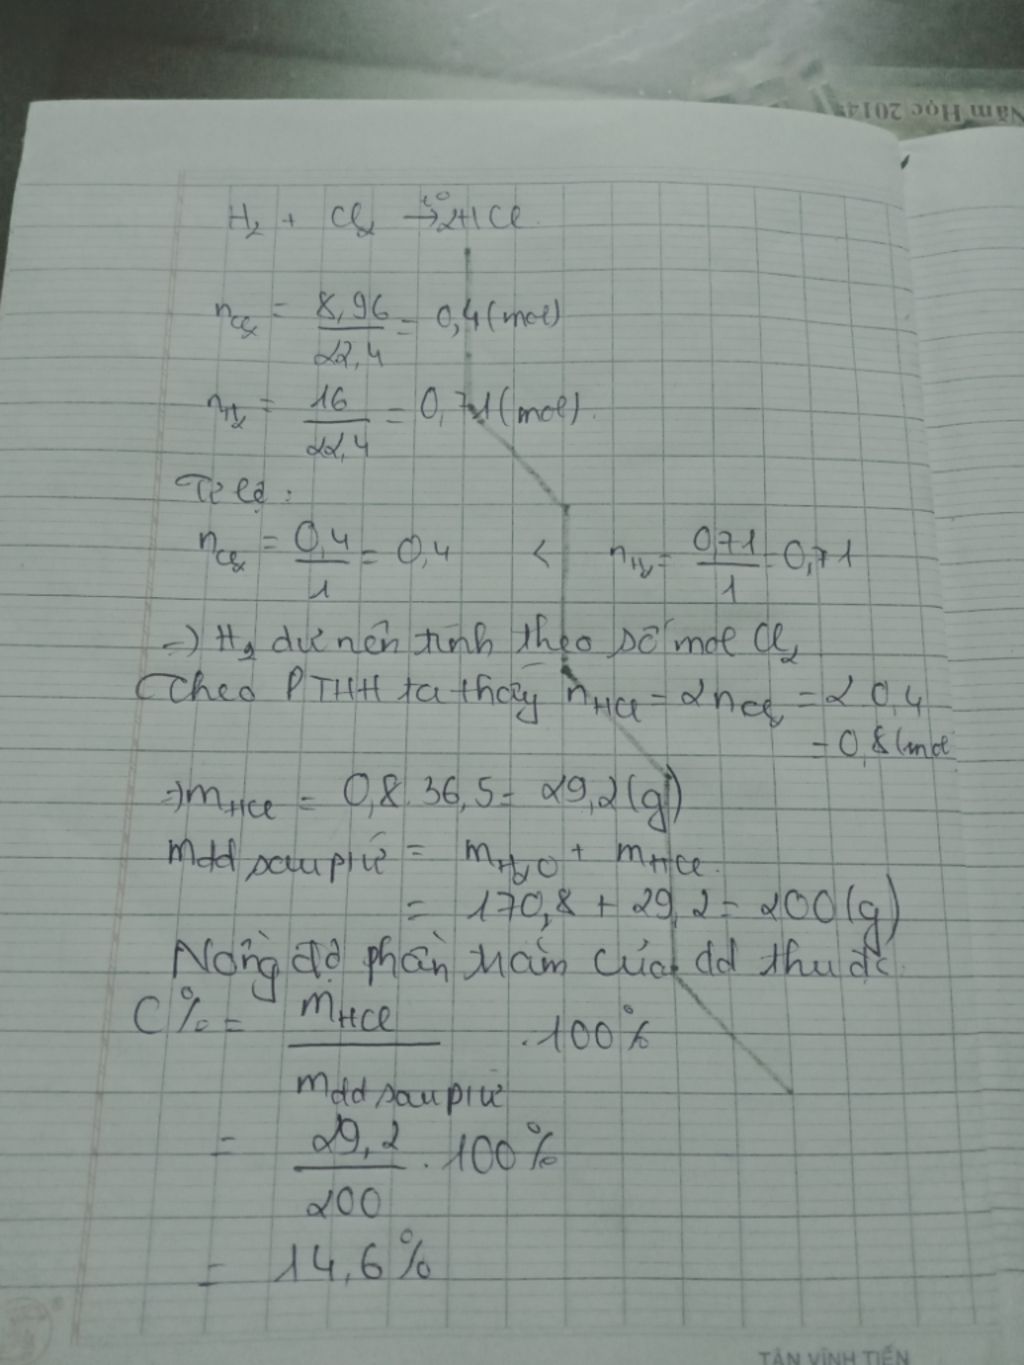 Năm Học 2014
H₂ + Cl₂ →t° 2HCl
nCl₂ = 8,96/22,4 = 0,4 (mol)
nH₂ = 16/22,4 = 0,71 (mol).
Tỉ lệ:
nCl₂ = 0,4/1 = 0,4 < nH₂ = 0,71/1 = 0,71
=> H₂ dư nên tính theo số mol Cl₂
Theo PTHH ta thấy nHCl = 2nCl₂ = 2 0,4
= 0,8 (mol
=> mHCl = 0,8.36,5 = 29,2 (g)
mdd sau pứ = mH₂O + mHCl.
= 170,8 + 29,2 = 200 (g)
Nồng độ phần trăm của dd thu đc
C% = mHCl/mdd sau pứ .100%
= 29,2/200 . 100%
= 14,6%
TÂN VĨNH TIẾN